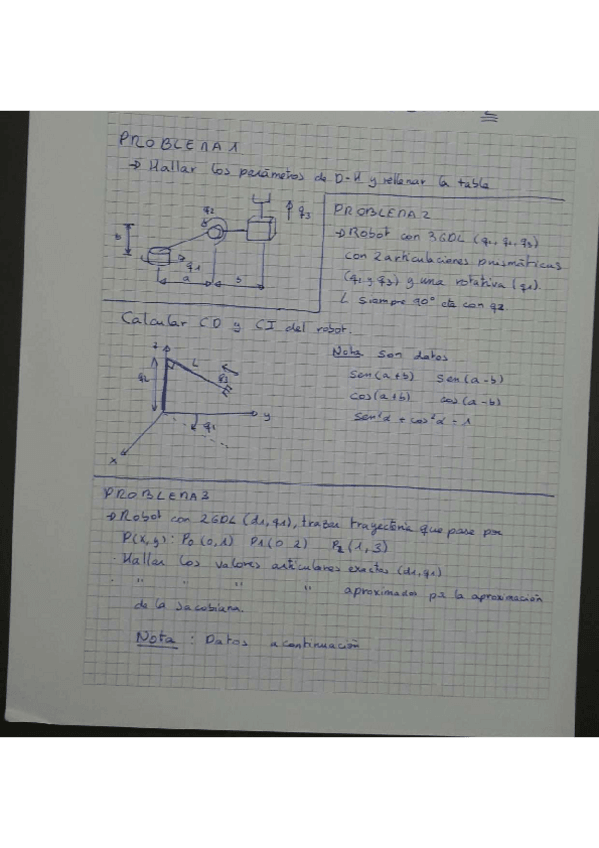 PROBLEMA 1
→ Hallar los parámetros de D-H y rellenar la tabla
q2
q3
q1
a
b
PROBLEMA 2
→ Robot con 3GDL (q1, q2, q3)
con 2 articulaciones prismáticas
y una rotativa (q1).
L siempre 90° con q2
Calcular CD y CI del robot.
z
L
q2
q3
q1
y
x
Nota son datos
sen(a+b) sen(a-b)
cos(a+b) cos(a-b)
sen²α + cos²α = 1
PROBLEMA 3
→ Robot con 2GDL (d1, q1), trazar trayectoria que pase por
P(x,y): P0(0,1) P1(0 2) P2(1,3)
· Hallar los valores articulares exactos (d1, q1)
· " " " " aproximados por la aproximación
de la Jacobiana.
Nota : Datos a continuación